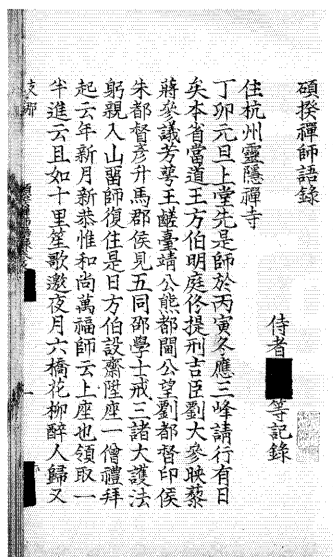 碩揆禪師語錄
侍者 等記錄
住杭州靈隱禪寺
丁卯元旦上堂先是師於丙寅冬應三峰請行有日
矣本省當道王方伯明庭佟提刑吉臣劉大參映藜
蔣參議芳擧王鹺臺靖公熊都閫公望劉都督印侯
朱都督彥升馬郡侯見五同邵學士戒三諸大護法
躬親入山留師復住是日方伯設齋陞座一僧禮拜
起云年新月新恭惟和尚萬福師云上座也領取一
半進云且如十里笙歌邀夜月六橋花柳醉人歸又